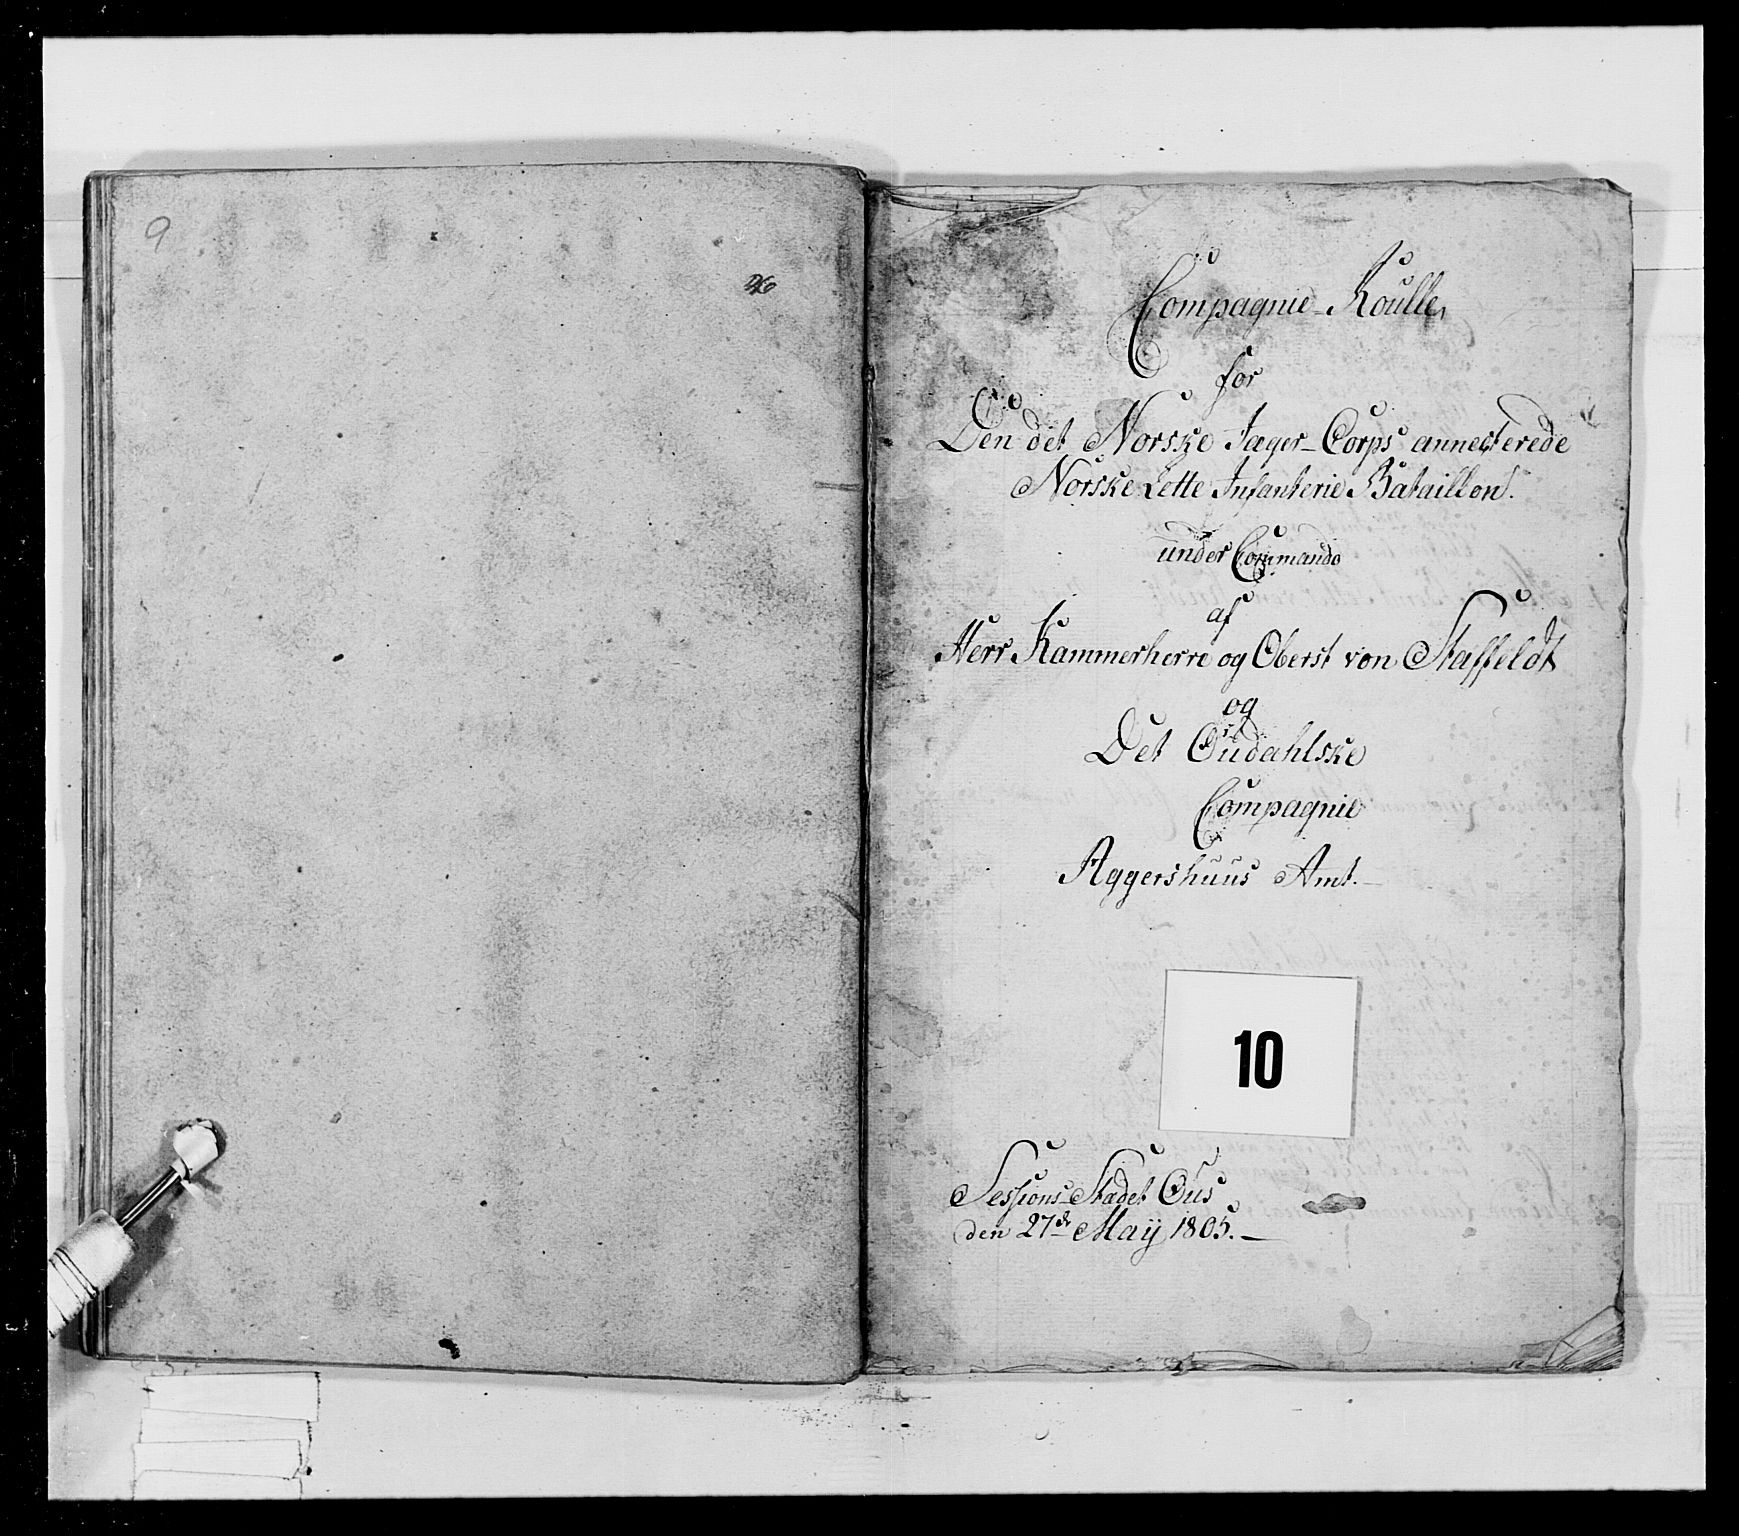 9
26
Compagnie-Roulle
for
Den det Norske Jæger-Corps annecterede
Norske Lette Infanterie Bataillon.
under Commando
af
Herr Kammerherre og Oberst von Staffeldt
og
Det Ousdahlske
Compagnie
Aggershuus Amt.
10
Sessions Stædet Ous
den 27de Maÿ 1805.